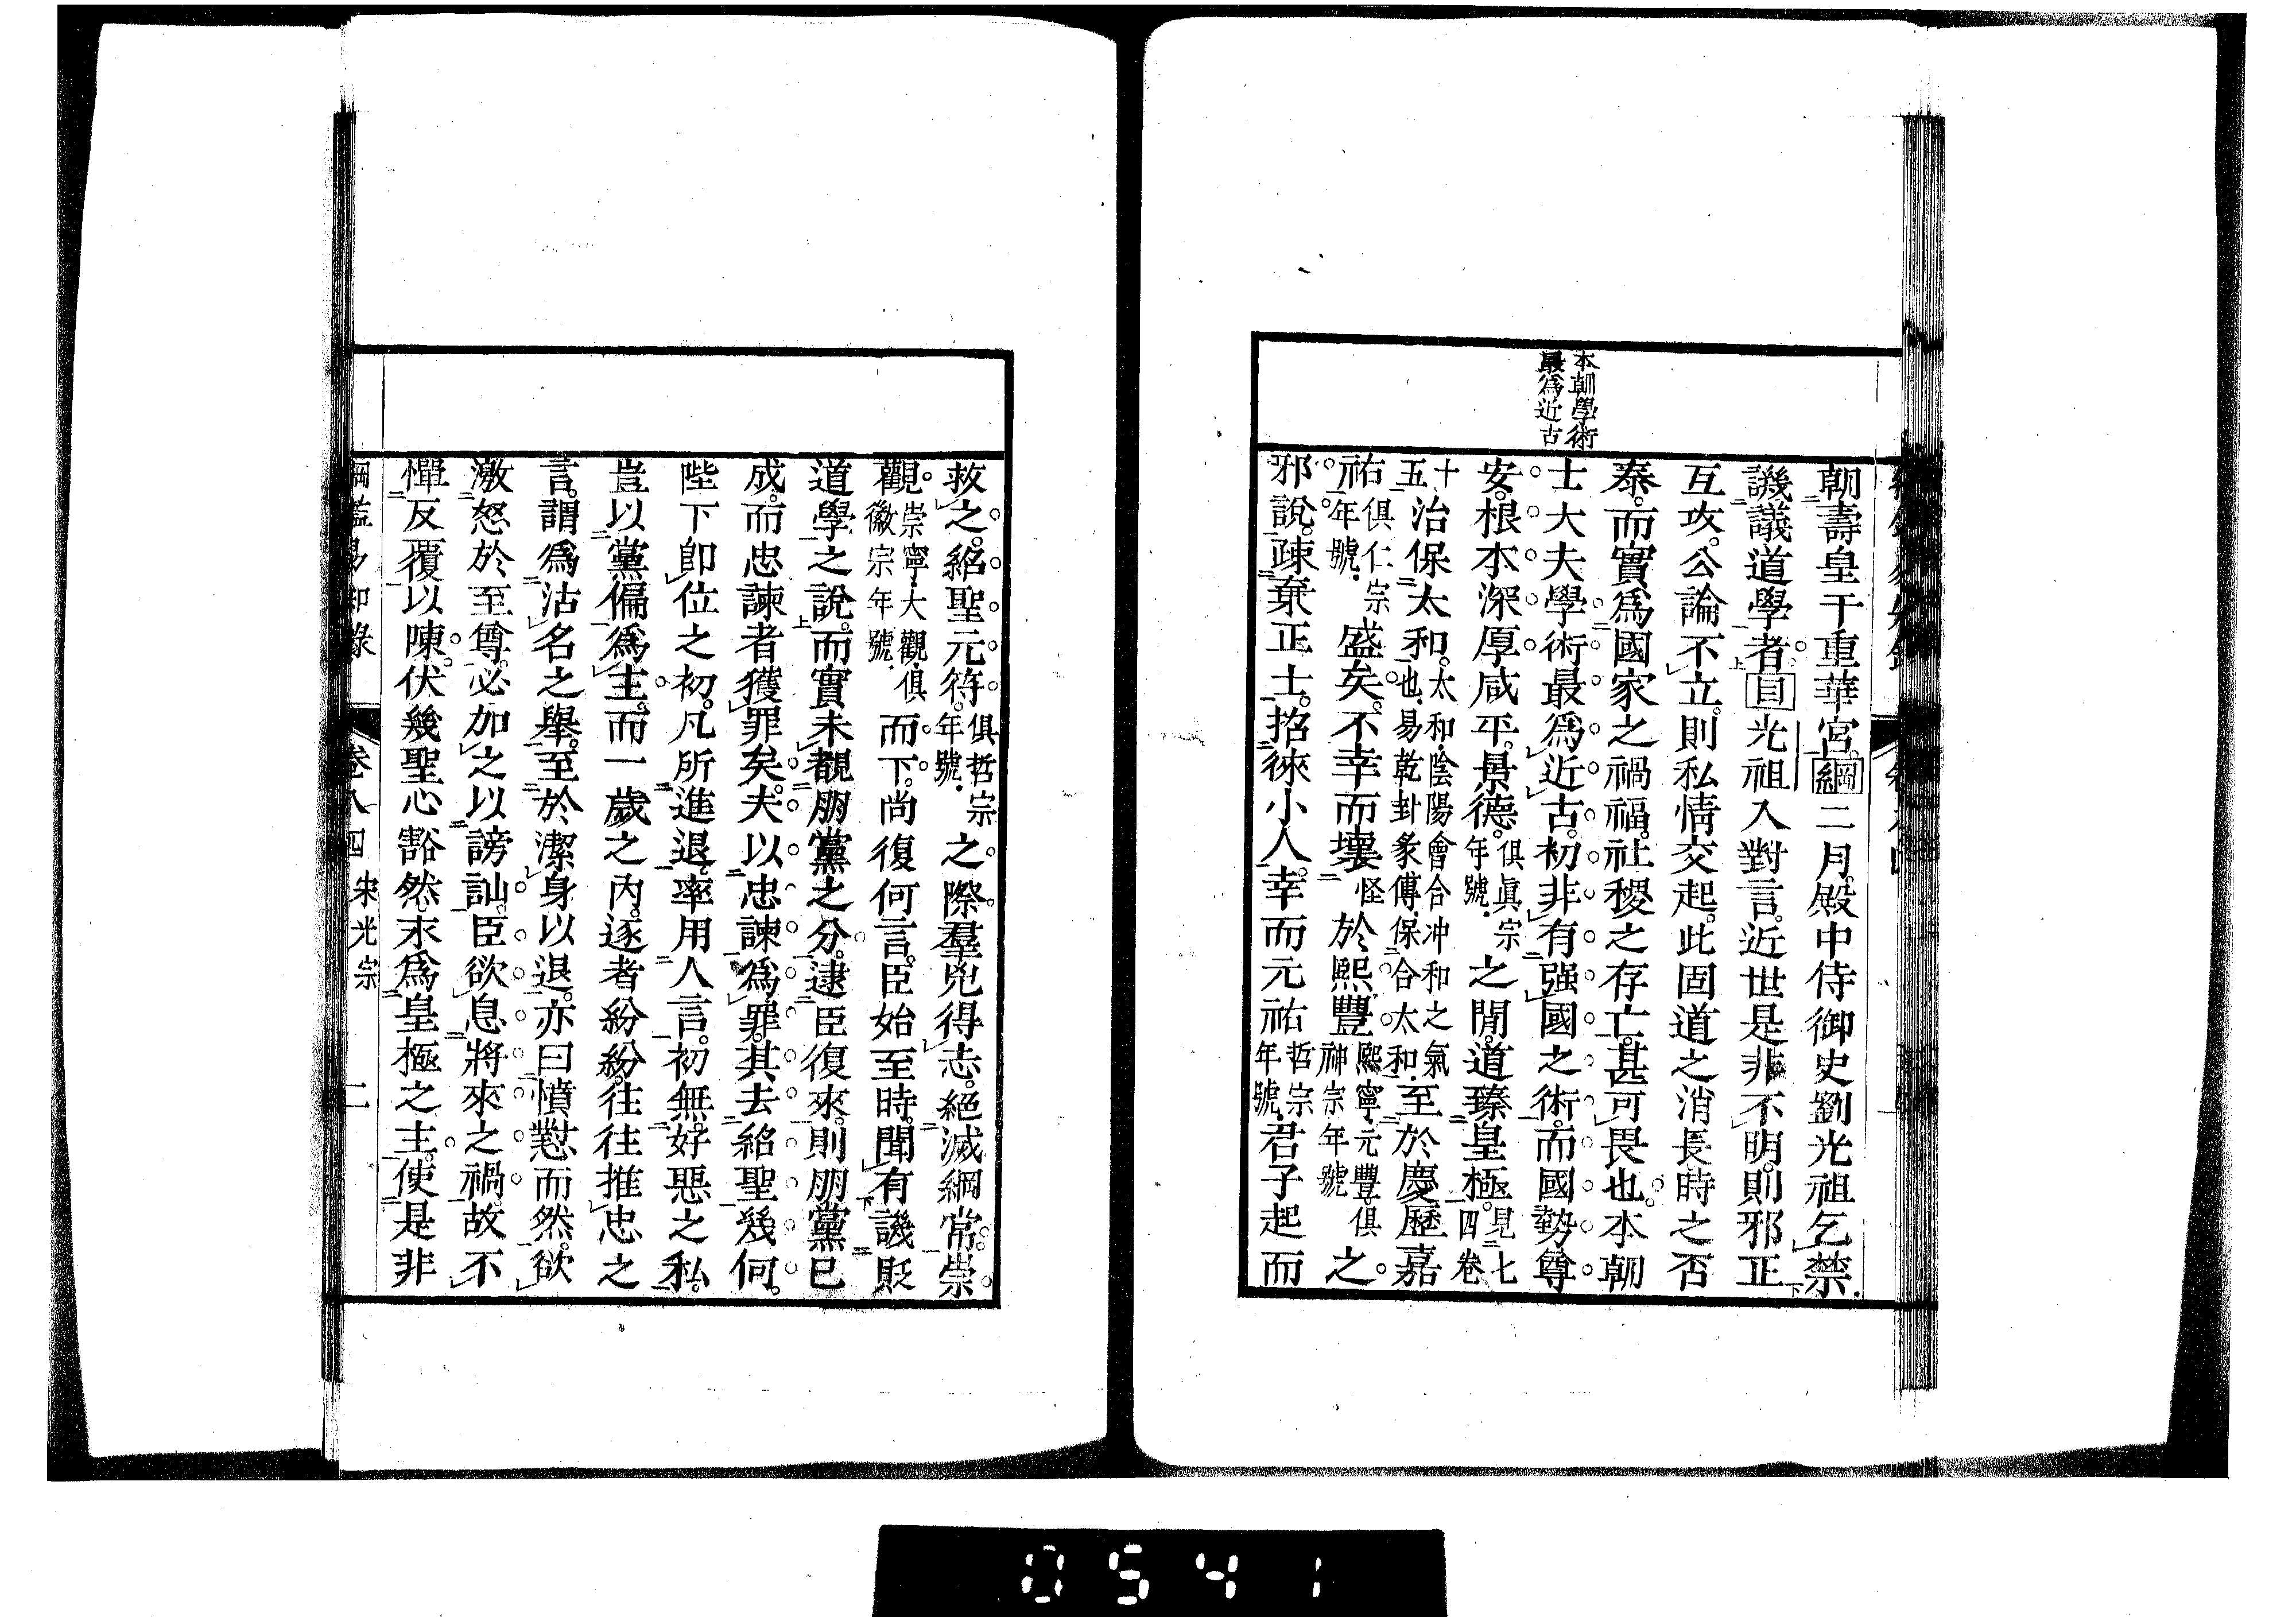 本朝學術
最爲近古
朝壽皇于重華宮。綱二月。殿中侍御史劉光祖乞禁
譏議道學者。目光祖入對言。近世是非不明。則邪正
互攻。公論不立。則私情交起。此固道之消長。時之否
泰。而實爲國家之禍福。社稷之存亡。甚可畏也。本朝
士大夫學術最爲近古。初非有强國之術。而國勢尊
安。根本深厚。咸平。景德。俱眞宗年號。之閒。道臻皇極。見七十四卷
五治保太和。太和。陰陽會合冲和之氣也。易乾封彖傳。保合太和。至於慶歷嘉
祐。俱仁宗年號。盛矣。不幸而壞怪於熙豐熙寧。元豐。俱神宗年號之
邪說。疎棄正士。招徠小人。幸而元祐哲宗年號。君子起而
救之。紹聖元符。俱哲宗年號。之際。羣兇得志。絕滅綱常。崇
觀。崇寧。大觀。俱徽宗年號。而下。尚復何言。臣始至時。聞有譏貶
道學之說。而實未覩朋黨之分。逮臣復來。則朋黨已
成。而忠諫者獲罪矣。夫以忠諫爲罪。其去紹聖幾何。
陛下卽位之初。凡所進退。率用人言。初無好惡之私。
豈以黨偏爲主。而一歲之內。逐者紛紛。往往推忠之
言。謂爲沽名之舉。至於潔身以退。亦曰憤懟而然。欲
激怒於至尊。必加之以謗訕。臣欲息將來之禍。故不
憚反覆以陳。伏幾聖心豁然。末爲皇極之主。使是非
綱鑑易知錄 卷八四 宋光宗 二
0541